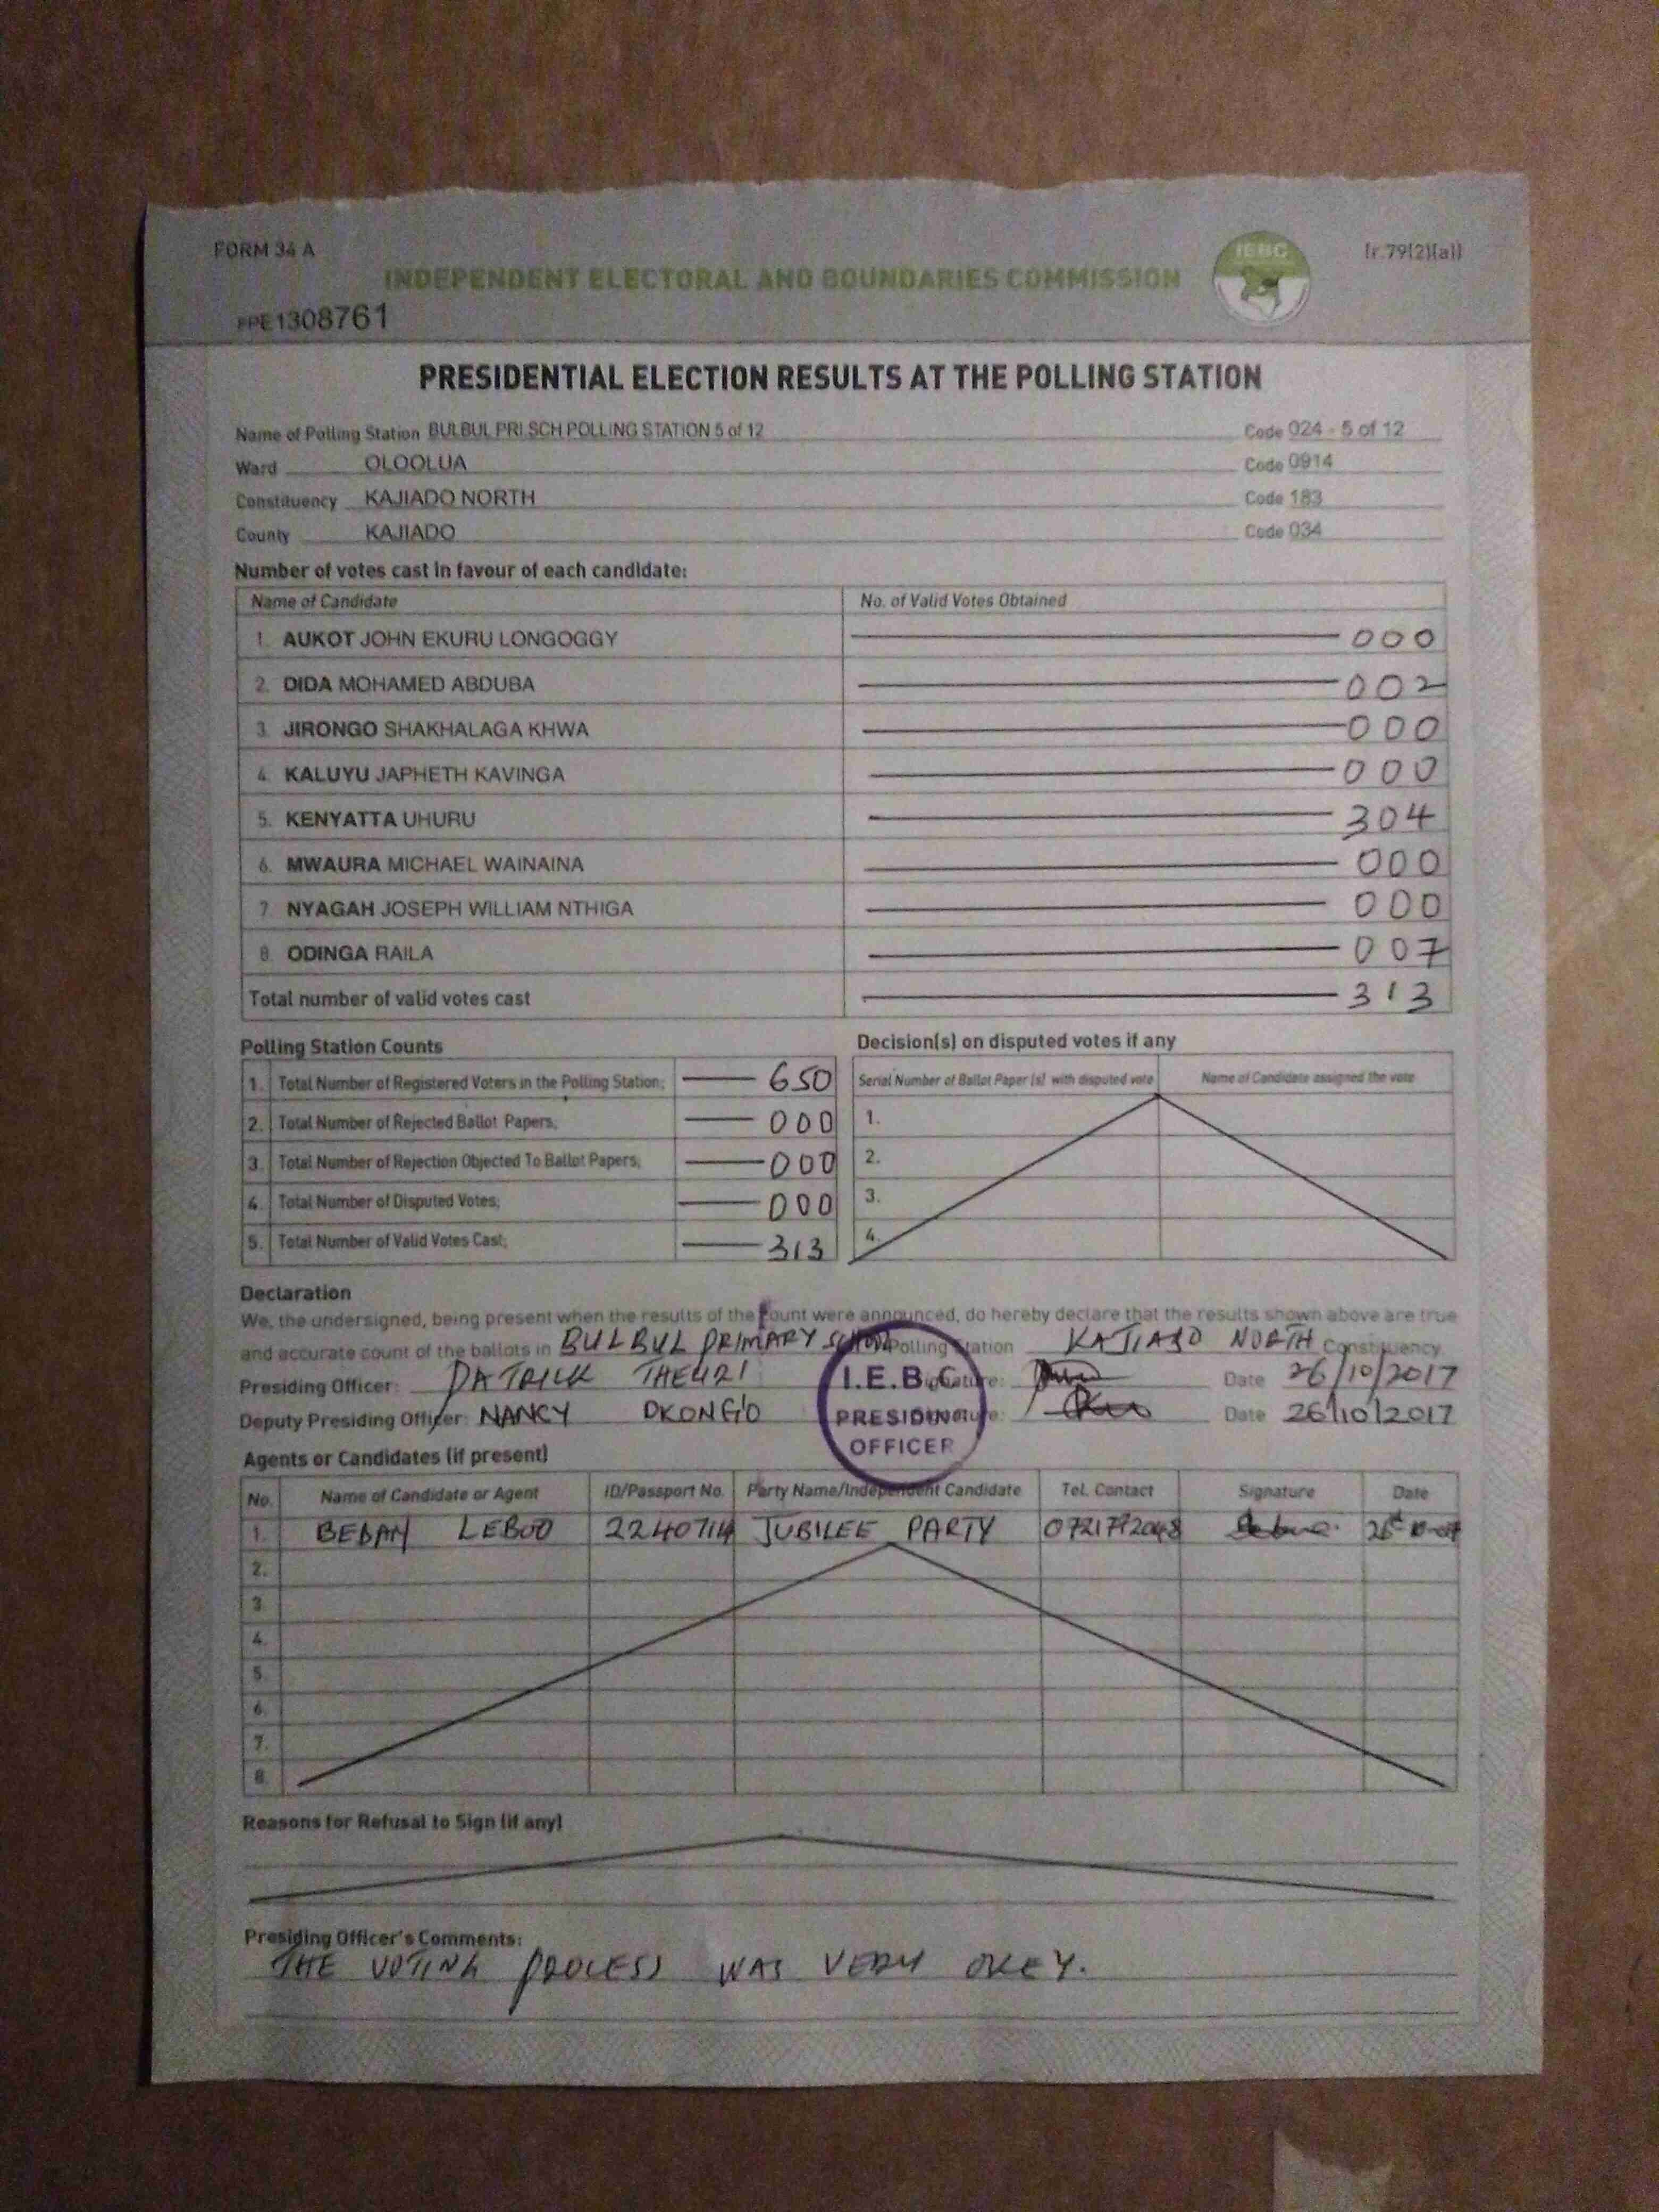 FORM 34 A
[r.79(2)(a)]
INDEPENDENT ELECTORAL AND BOUNDARIES COMMISSION
IEBC
PPE1308761
PRESIDENTIAL ELECTION RESULTS AT THE POLLING STATION
Name of Polling Station BULBUL PRI SCH POLLING STATION 5 of 12 Code 024 - 5 of 12
Ward OLOOLUA Code 0914
Constituency KAJIADO NORTH Code 183
County KAJIADO Code 034
Number of votes cast in favour of each candidate:
Name of Candidate No. of Valid Votes Obtained
1. AUKOT JOHN EKURU LONGOGGY 000
2. DIDA MOHAMED ABDUBA 002
3. JIRONGO SHAKHALAGA KHWA 000
4. KALUYU JAPHETH KAVINGA 000
5. KENYATTA UHURU 304
6. MWAURA MICHAEL WAINAINA 000
7. NYAGAH JOSEPH WILLIAM NTHIGA 000
8. ODINGA RAILA 007
Total number of valid votes cast 313
Polling Station Counts
1. Total Number of Registered Voters in the Polling Station; 650
2. Total Number of Rejected Ballot Papers; 000
3. Total Number of Rejection Objected To Ballot Papers; 000
4. Total Number of Disputed Votes; 000
5. Total Number of Valid Votes Cast; 313
Decision(s) on disputed votes if any
Serial Number of Ballot Paper (s) with disputed vote Name of Candidate assigned the vote
1.
2.
3.
4.
Declaration
We, the undersigned, being present when the results of the count were announced, do hereby declare that the results shown above are true
and accurate count of the ballots in BULBUL PRIMARY SCHOOL Polling Station KAJIADO NORTH Constituency.
Presiding Officer: PATRICK THEURI Signature: Date 26/10/2017
Deputy Presiding Officer: NANCY OKONGO Signature: Date 26/10/2017
I.E.B.C
PRESIDING
OFFICER
Agents or Candidates (if present)
No. Name of Candidate or Agent ID/Passport No. Party Name/Independent Candidate Tel. Contact Signature Date
1. LEBOO JUBILEE PARTY
2.
3.
4.
5.
6.
7.
8.
Reasons for Refusal to Sign (if any)
Presiding Officer's Comments:
THE VOTING PROCESS WAS VERY OKEY.